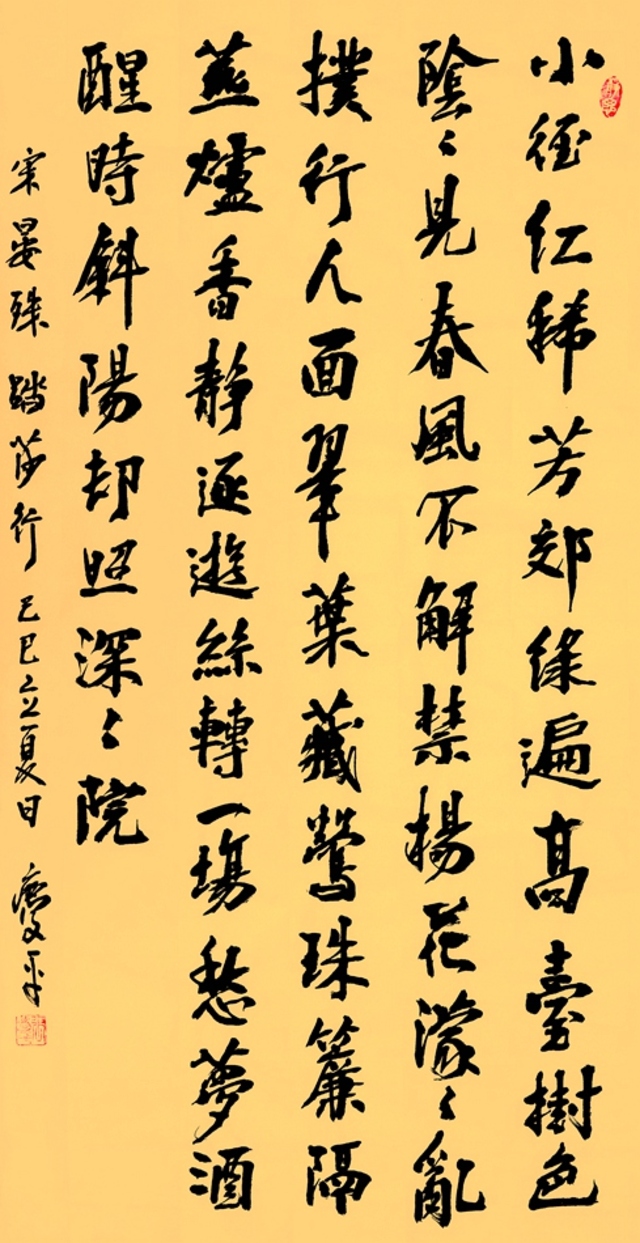 小徑紅稀芳郊綠遍高臺樹色
陰〻見春風不解禁楊花濛〻亂
撲行人面翠葉藏鶯珠簾隔
燕爐香靜逐遊絲轉一場愁夢酒
醒時斜陽却照深〻院
宋晏殊踏莎行 己巳立夏日 平